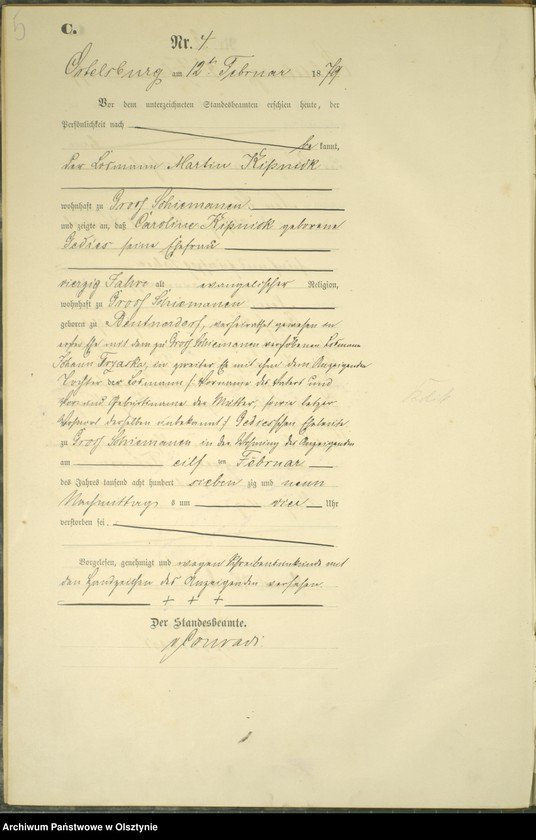 5
C.
Nr. 4.
Ortelsburg am 12ten Februar 1879
Vor dem unterzeichneten Standesbeamten erschien heute, der
Persönlichkeit nach
be kannt,
der Losmann Martin Kißnick
wohnhaft zu Groß Schiemanen
und zeigte an, daß Caroline Kißnick geborene
Gedies seine Ehefrau
vierzig Jahre alt evangelischer Religion,
wohnhaft zu Groß Schiemanen
geboren zu verheirathet gewesen in
erster Ehe mit dem zu Groß Schiemanen verstorbenen Losmann
Johann in zweiter Ehe mit ihm dem Anzeigenden
Tochter der Losmann /: Vorname des Vaters und
Vor und Geburtsname der Mutter, sowie letzter
Wohnort derselben unbekannt :/ Gediesschen Eheleute
zu Groß Schiemanen in der Wohnung des Anzeigenden
am eilf ten Februar
des Jahres tausend acht hundert sieben zig und neun
Nachmittags um vier Uhr
verstorben sei.
Vorgelesen, genehmigt und wegen Schreibensunkunde mit
den Handzeichen des Anzeigenden versehen
+ + +
Der Standesbeamte.
v Conradi
Archiwum Państwowe w Olsztynie